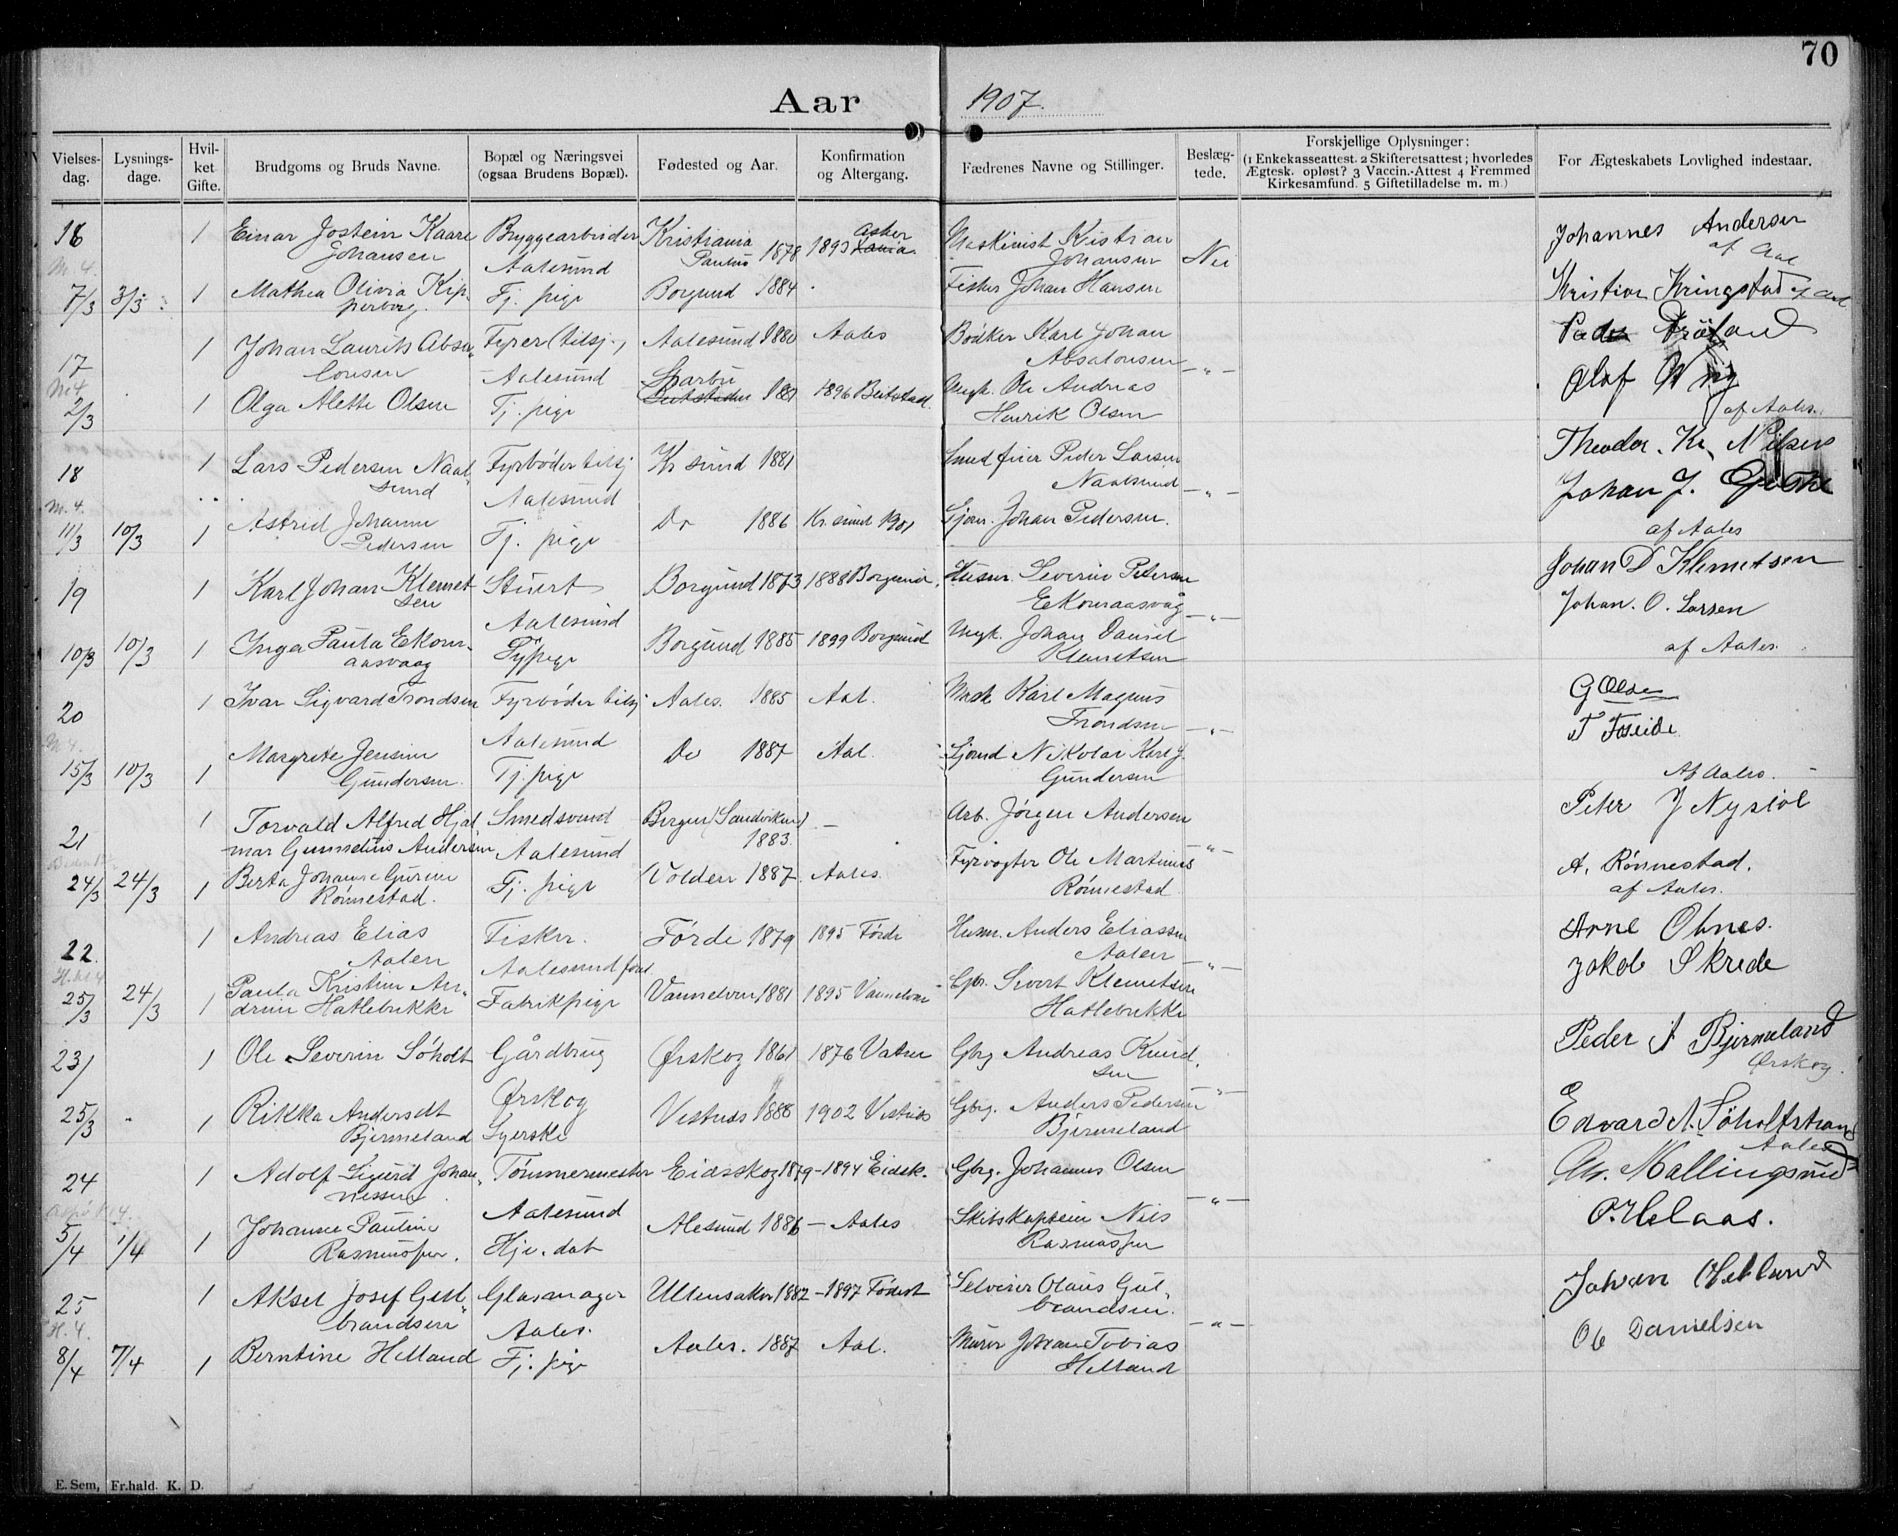 70
Aar 1907.
Vielses-dag. Lysnings-dage. Hvil-ket Gifte. Brudgoms og Bruds Navne. Bopæl og Næringsvei (ogsaa Brudens Bopæl). Fødested og Aar. Konfirmation og Altergang. Fædrenes Navne og Stillinger. Beslæg-tede. Forskjellige Oplysninger: (1 Enkekasseattest. 2 Skifteretsattest; hvorledes Ægtesk. opløst? 3 Vaccin.-Attest 4 Fremmed Kirkesamfund. 5 Giftetilladelse m. m.) For Ægteskabets Lovlighed indestaar.
16 1 Einar Jostein Kaare Bryggearbeider Kristiania 1893 Asker Maskinist Kristian Johannes Andersen
Johansen Aalesund Paulus 1878 Johansen Nei af Aal
7/3 3/3 1 Mathea Olivia Kip- Tj. pige Borgund 1884 Fisker Johan Hansen Kristian Kringstad af Aal
perberg.
17 1 Johan Laurits Absa- Fyrer (tilsj.) Aalesund 1880 Aales Bødker Karl Johan Peder Frøland
lonsen Aalesund Sparbu Absalonsen -"- Olaf
2/3 1 Olga Alette Olsen Tj. pige 1881 1896 Beitstad. Ungk. Ole Andreas
Henrik Olsen af Aales.
18 1 Lars Pedersen Naal- Fyrbøder tilsj Kr sund 1881 Smedsvend Peder Larsen Theodor. Kr. Nilsen
sund Aalesund Naalsund -"- Johan J.
11/3 10/3 1 Astrid Johanne Tj. pige Do 1886 Kr. sund 1901 Sjøm. Johan Pedersen. af Aales
Pedersen
19 1 Karl Johan Klemet- Stuert Borgund 1873 1888 Borgund. Husm. Severin Petersen Johan D Klemetsen
sen Aalesund Ekornaasvåg -"- Johan. O. Larsen
10/3 10/3 1 Inga Paula Ekorn- Tj pige Borgund 1885 1899 Borgund Ungk. Johan Daniel af Aales.
aasvaag Klemetsen
20 1 Ivar Sigvard Trondsen Fyrbøder tilsj Aales. 1885 Aal. Mask Karl Magnus G Olsen
Aalesund Trondsen -"- T Foseide
15/3 10/3 1 Margrete Jensine Tj. pige Do 1887 Aal. Sjømd Nikolai Karl J. Af Aales.
Gundersen. Gundersen
21 1 Torvald Alfred Hjal- Smedsvend Bergen (Sandviken) - Arb. Jørgen Andersen Peter J Nystøl
mar Gunnelius Andersen Aalesund 1883. -"-
24/3 24/3 1 Berta Johanne Gurine Tj. pige Volden 1887. Aales. Fyrvogter Ole Martinus A. Rønnestad.
Rønnestad. Rønnestad. af Aales.
22. 1 Andreas Elias Fisker. Førde 1879 1895 Førde Husm. Anders Eliassen Arne Ohnes.
Aalen Aalesund Aalen -"- Jakob Skrede
25/3 24/3 1 Paula Kristine An- Fabrikpige Vannelven 1881 1895 Vannelven Gbr. Sivert Klemetsen
drine Hatlebrekke Hatlebrekke
23 1 Ole Severin Søholt Gårdbrug Ørskog 1861 1876 Vatne Gbrg Andreas Knud- Peder A Bjermeland
Ørskog sen -"- Ørskog.
25/3 " 1 Rikka Andersdt Syerske Vestnes 1888 1902 Vestnes Gbrg. Anders Pedersen Edvard A. Søholtstrand
Bjermeland Bjermeland Aales
24 1 Adolf Sigurd Johan- Tømmermester Eidsskog 1879 - 1894 Eidsk. Gbrg. Johannes Olsen Chr. Mallingsund
nessen Aalesund -"-
5/4 1/4 1 Johanne Pauline Hje. dat Alesund 1886 - Aales Skibskaptein Nils O. Helaas.
Rasmussen. Rasmussen
25 1 Aksel Josef Gul- Glasmager Ullensaker 1882 - 1897 Fødest Selveier Olaus Gul- Johan Hetlund
brandsen Aales. brandsen. -"-
8/4 7/4 1 Berntine Helland Tj. pige Aales. 1887 Aal. Murer Johan Tobias Ole Danielsen
Helland
E. Sem, Fr.hald. K. D.